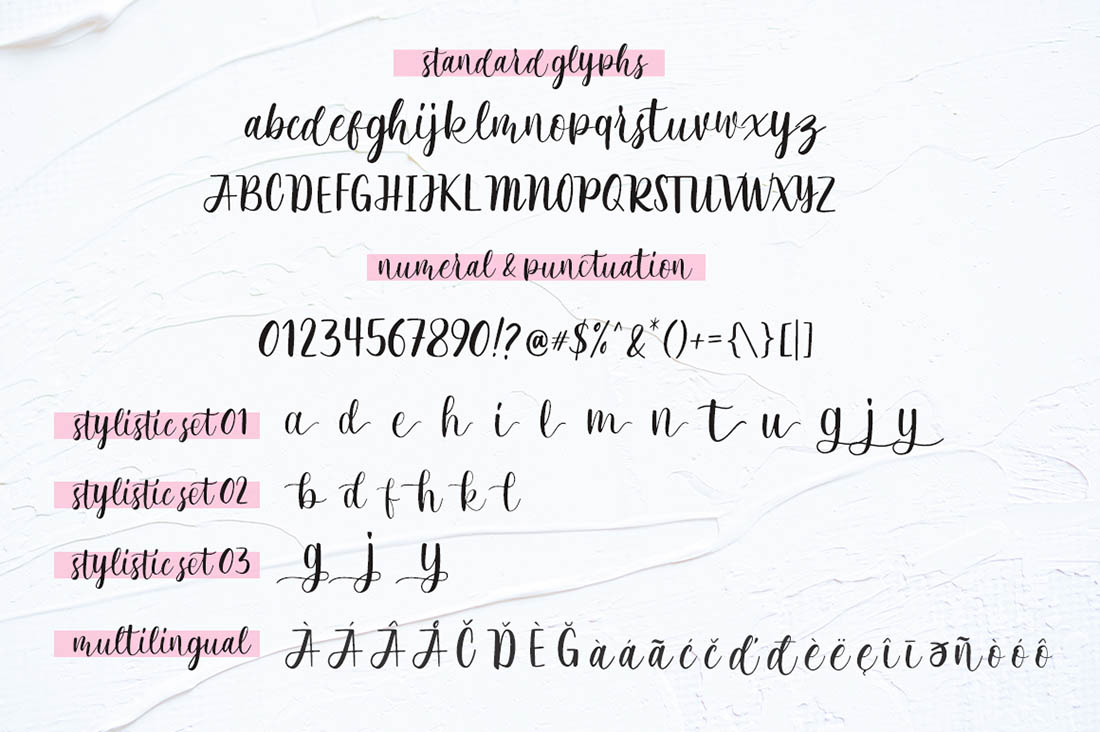 standard glyphs
abcdefghijklmnopqrstuvwxyz
ABCDEFGHIJKLMNOPQRSTUVWXYZ
numeral & punctuation
01234567890!?@#$%^&*()+={\}[|]
stylistic set 01 a d e h i l m n t u g j y
stylistic set 02 b d f h k t
stylistic set 03 g j y
multilingual À Á Â Å Č Ď È Ğ à á ã ć č ď đ è ë ę î ī ə ñ ò ó ô